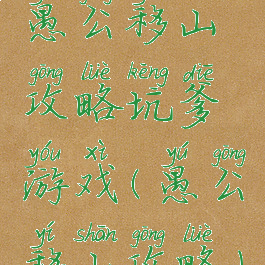 愚公移山
gōng lüè kēng diē
攻略坑爹
yóu xì yú gōng
游戏(愚公
yí shān gōng lüè
移山攻略)